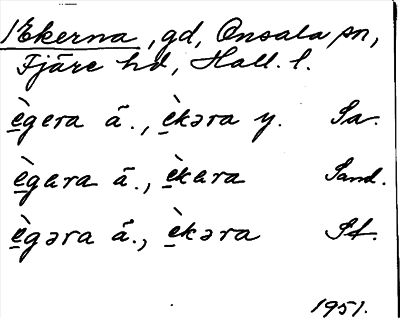 1 Ekerna, gd, Onsala sn,
Fjäre hd, Hall. l.
ègera ä., èkəra y. Sa.
ègara ä., èkara Sand.
ègəra ä., èkəra Sf.
1951.